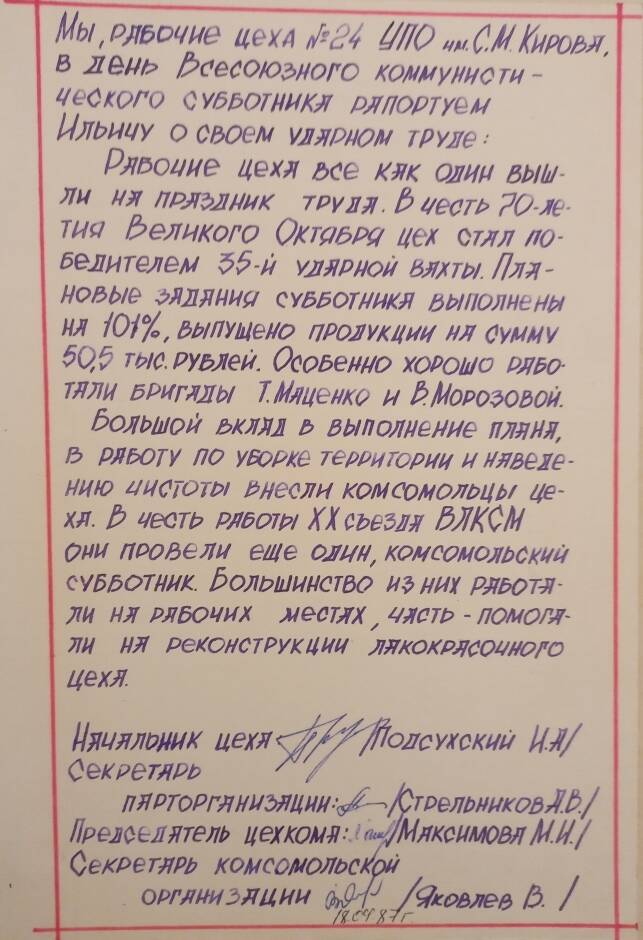 Мы, рабочие цеха №24 УПО им. С.М. Кирова,
в день Всесоюзного коммунисти-
ческого субботника рапортуем
Ильичу о своем ударном труде:
Рабочие цеха все как один выш-
ли на праздник труда. В честь 70-ле-
тия Великого Октября цех стал по-
бедителем 35-й ударной вахты. Пла-
новые задания субботника выполнены
на 101%, выпущено продукции на сумму
50,5 тыс. рублей. Особенно хорошо рабо-
тали бригады Т. Маценко и В. Морозовой.
Большой вклад в выполнение плана,
в работу по уборке территории и наведе-
нию чистоты внесли комсомольцы це-
ха. В честь работы XX съезда ВЛКСМ
они провели еще один, комсомольский
субботник. Большинство из них работа-
ли на рабочих местах, часть - помога-
ли на реконструкции лакокрасочного
цеха.
Начальник цеха /Подсухский И.А/
Секретарь
парторганизации: /Стрельников А.В./
Председатель цехкома: /Максимова М.И./
Секретарь комсомольской
организации /Яковлев В. /
18.04.87г.